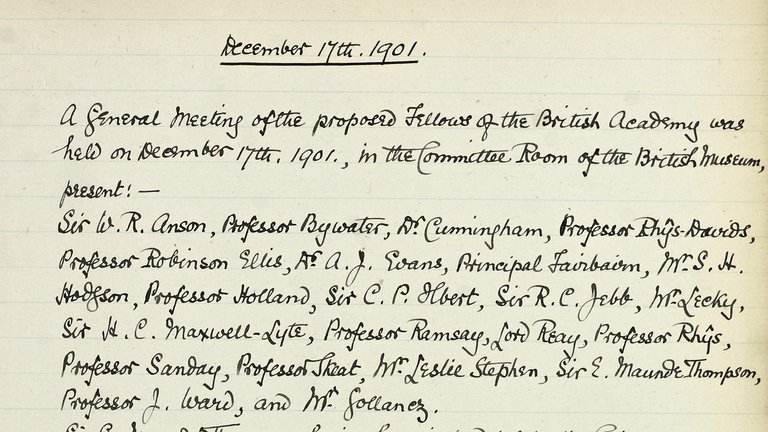 December 17th. 1901.
A General Meeting of the proposed Fellows of the British Academy was
held on December 17th. 1901., in the Committee Room of the British Museum,
present: —
Sir W. R. Anson, Professor Bywater, Dr. Cunningham, Professor Rhŷs-Davids,
Professor Robinson Ellis, Dr. A. J. Evans, Principal Fairbairn, Mr. S. H.
Hodgson, Professor Holland, Sir C. P. Ilbert, Sir R. C. Jebb, Mr. Lecky,
Sir H. C. Maxwell-Lyte, Professor Ramsay, Lord Reay, Professor Rhŷs,
Professor Sanday, Professor Skeat, Mr. Leslie Stephen, Sir E. Maunde Thompson,
Professor J. Ward, and Mr. Gollancz.